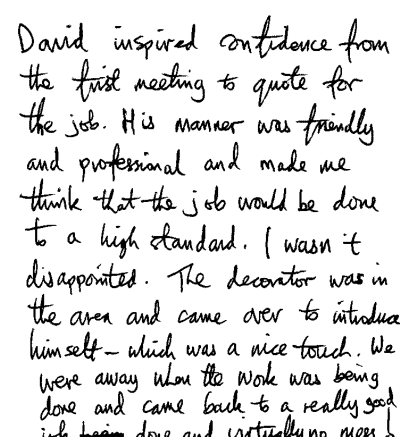 David inspired confidence from
the first meeting to quote for
the job. His manner was friendly
and professional and made me
think that the job would be done
to a high standard. I wasn't
disappointed. The decorator was in
the area and came over to introduce
himself - which was a nice touch. We
were away when the work was being
done and came back to a really good
job done and virtually no mess